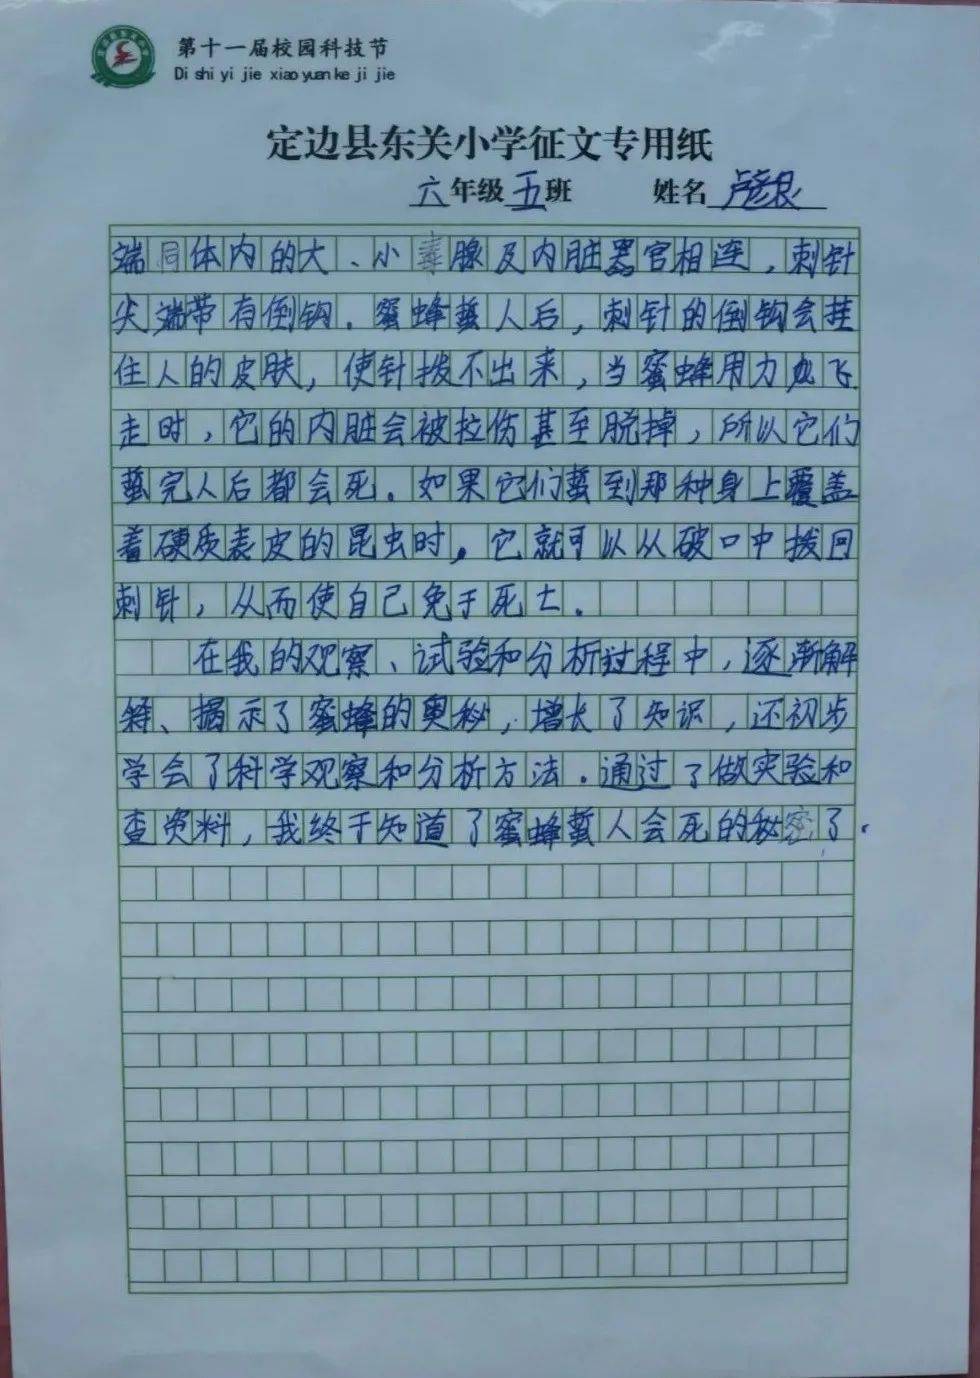 第十一届校园科技节
Di shi yi jie xiao yuan ke ji jie
定边县东关小学征文专用纸
六年级五班 姓名卢彦良
端同体内的大、小毒腺及内脏器官相连，刺针
尖端带有倒钩．蜜蜂蜇人后，刺针的倒钩会挂
住人的皮肤，使针拨不出来，当蜜蜂用力飞
走时，它的内脏会被拉伤甚至脱掉，所以它们
蜇完人后都会死．如果它们蜇到那种身上覆盖
着硬质表皮的昆虫时，它就可以从破口中拨回
刺针，从而使自己免于死亡．
在我的观察、试验和分析过程中，逐渐解
释、揭示了蜜蜂的奥秘，增长了知识，还初步
学会了科学观察和分析方法．通过了做实验和
查资料，我终于知道了蜜蜂蜇人会死的秘密了．